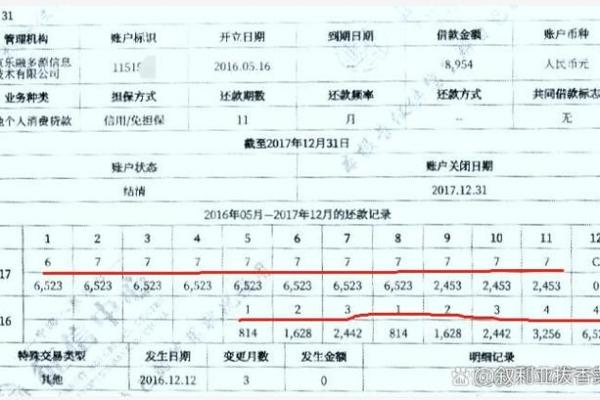 31
管理机构 账户标识 开立日期 到期日期 借款金额 账户币种
京乐融多源信息技术有限公司 1151 2016.05.16 -- 8,954 人民币元
业务种类 担保方式 还款期数 还款频率 还款方式 共同借款标志
他个人消费贷款 信用/免担保 11 月 -- 无
截至2017年12月31日
账户状态 账户关闭日期
结清 2017.12.31
2016年05月—2017年12月的还款记录
1 2 3 4 5 6 7 8 9 10 11 12
17 6 7 7 7 7 7 7 7 7 7 7 C
6,523 6,523 6,523 6,523 6,523 6,523 6,523 6,523 2,453 2,453 2,453 0
16 1 2 3 1 2 3 4 4
814 1,628 2,442 814 1,628 2,442 3,256 6,52
特殊交易类型 发生日期 变更月数 发生金额 明细记录
其他 2016.12.12 3 0
@叙利亚拔香